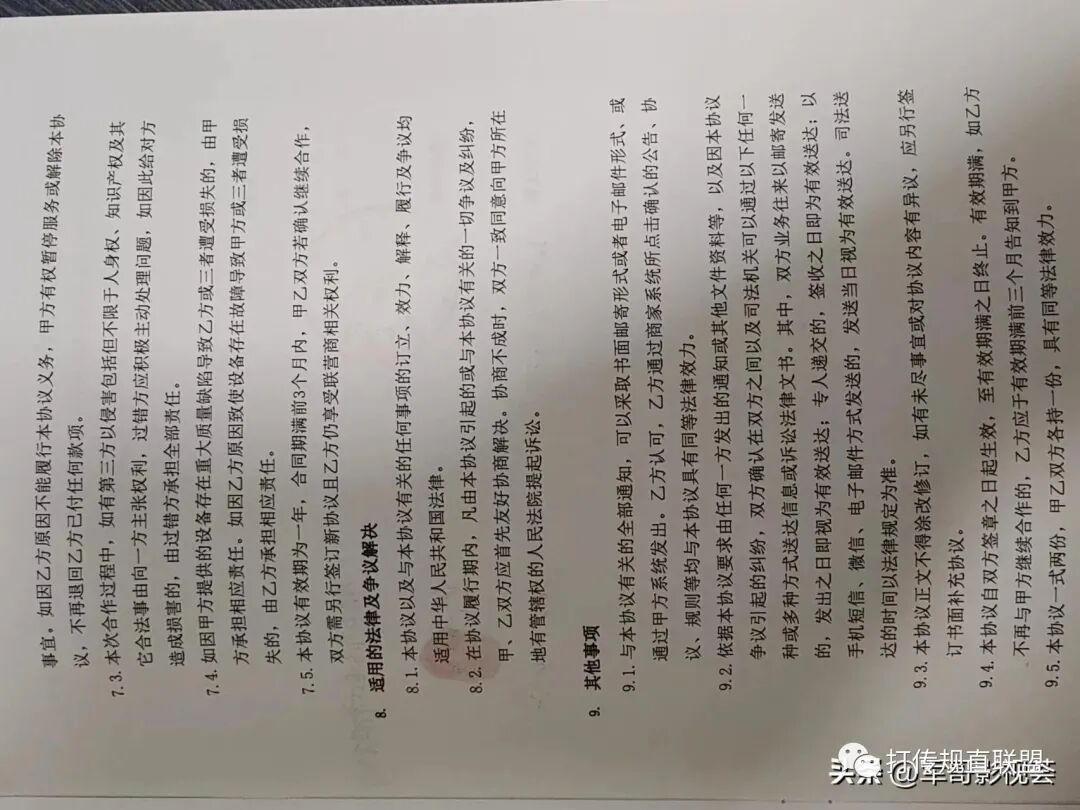 事宜。如因乙方原因不能履行本协议义务，甲方有权暂停服务或解除本协
议，不再退回乙方已付任何款项。
7.3. 本次合作过程中，如有第三方以侵害包括但不限于人身权、知识产权及其
它合法事由向一方主张权利，过错方应积极主动处理问题，如因此给对方
造成损害的，由过错方承担全部责任。
7.4. 如因甲方提供的设备存在重大质量缺陷导致乙方或三者遭受损失的，由甲
方承担相应责任。如因乙方原因致使设备存在故障导致甲方或三者遭受损
失的，由乙方承担相应责任。
7.5. 本协议有效期为一年，合同期满前3个月内，甲乙双方若确认继续合作，
双方需另行签订新协议且乙方仍享受联营商相关权利。
8. 适用的法律及争议解决
8.1. 本协议以及与本协议有关的任何事项的订立、效力、解释、履行及争议均
适用中华人民共和国法律。
8.2. 在协议履行期内，凡由本协议引起的或与本协议有关的一切争议及纠纷，
甲、乙双方应首先友好协商解决。协商不成时，双方一致同意向甲方所在
地有管辖权的人民法院提起诉讼。
9. 其他事项
9.1. 与本协议有关的全部通知，可以采取书面邮寄形式或者电子邮件形式、或
通过甲方系统发出。乙方认可，乙方通过商家系统所点击确认的公告、协
议、规则等均与本协议具有同等法律效力。
9.2. 依据本协议要求由任何一方发出的通知或其他文件资料等，以及因本协议
争议引起的纠纷，双方确认在双方之间以及司法机关可以通过以下任何一
种或多种方式送达信息或诉讼法律文书。其中，双方业务往来以邮寄发送
的，发出之日即视为有效送达；专人递交的，签收之日即为有效送达；以
手机短信、微信、电子邮件方式发送的，发送当日视为有效送达。司法送
达的时间以法律规定为准。
9.3. 本协议正文不得涂改修订，如有未尽事宜或对协议内容有异议，应另行签
订书面补充协议。
9.4. 本协议自双方签章之日起生效，至有效期满之日终止。有效期满，如乙方
不再与甲方继续合作的，乙方应于有效期满前三个月告知到甲方。
9.5. 本协议一式两份，甲乙双方各持一份，具有同等法律效力。
打传规直联盟
头条 @军哥影视荟